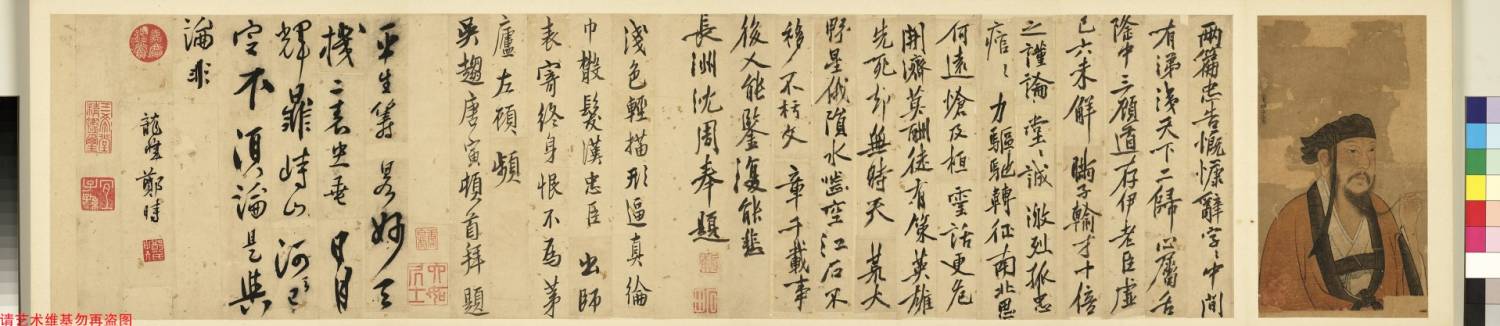 两篇忠告慨慷辭字〻中間
有涕淺天下二歸心屬舌
隆中三顧道存伊老臣虛
已六未解 才十倍
之謹論堂〻誠激烈孤忠
痯〻力驅馳轉征南北思
何遠愴及桓靈話更危
開濟莫酬徒有策英雄
先死却無時天 大
野星俄隕水 空江石不
移不朽文章千載事
後人能鑒復能悲
長洲沈周奉題
淺色輕描形逼真綸
巾散髮漢忠臣出師
表寄終身恨不為茅
廬左顧頻
吳趨唐寅頓首拜題
平生籌略妙三
機二表忠垂日月
輝龍峙山河已
空不須論是與
論非
龍 鄭時
请艺术维基勿再盗图